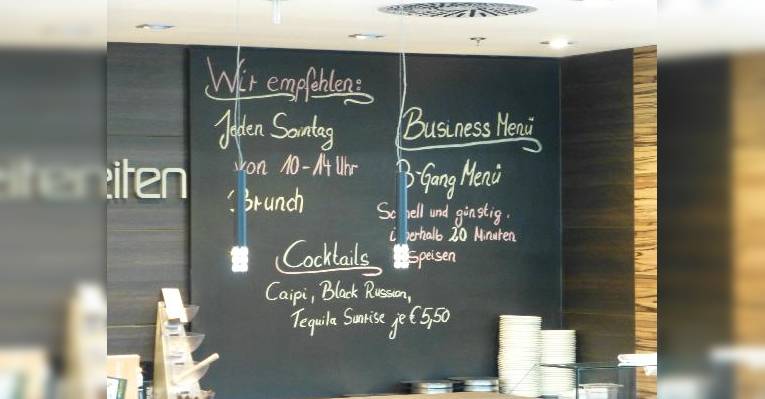 Wir empfehlen:
Jeden Sonntag
von 10-14 Uhr
Brunch
Business Menü
3-Gang Menü
Schnell und günstig.
innerhalb 20 Minuten
Speisen
Cocktails
Caipi, Black Russian,
Tequila Sunrise je € 5,50
eiten